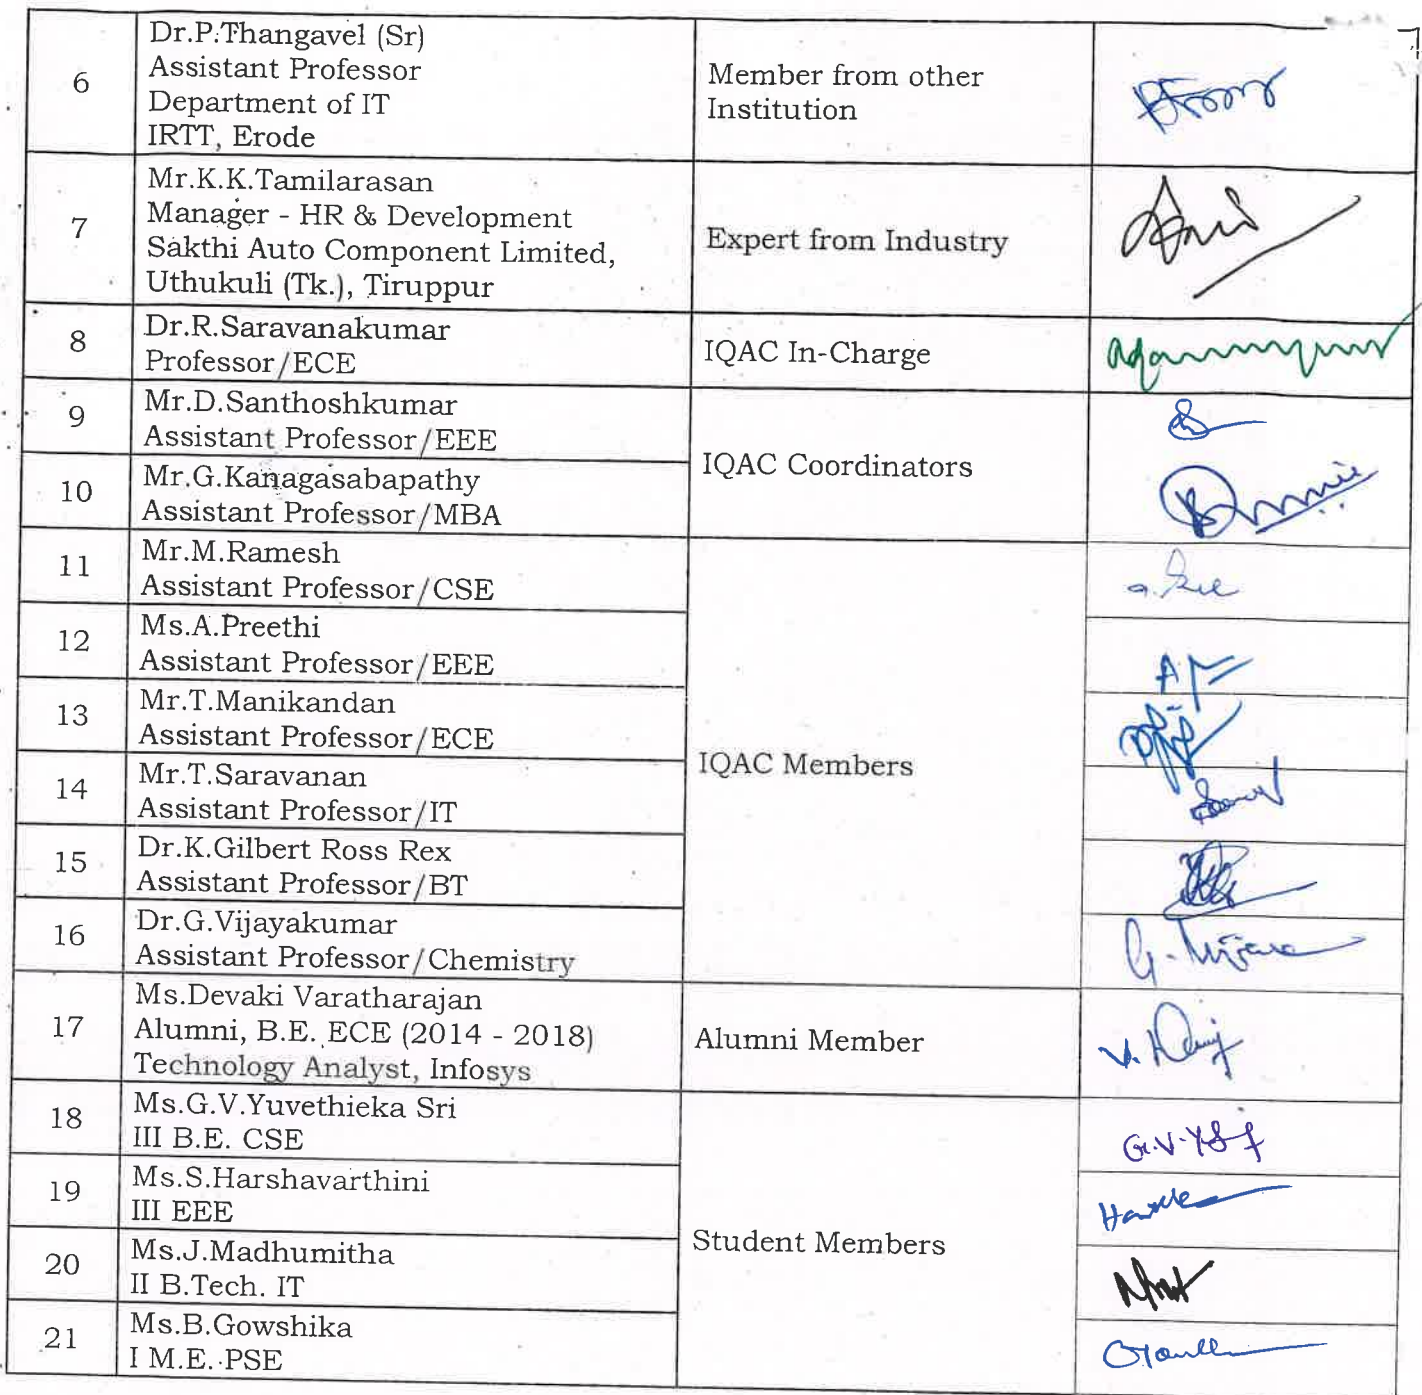 6
Dr.P.Thangavel (Sr)
Assistant Professor
Department of IT
IRTT, Erode
Member from other
Institution
7
Mr.K.K.Tamilarasan
Manager - HR & Development
Sakthi Auto Component Limited,
Uthukuli (Tk.), Tiruppur
Expert from Industry
8
Dr.R.Saravanakumar
Professor/ECE
IQAC In-Charge
9
Mr.D.Santhoshkumar
Assistant Professor/EEE
IQAC Coordinators
10
Mr.G.Kanagasabapathy
Assistant Professor/MBA
11
Mr.M.Ramesh
Assistant Professor/CSE
12
Ms.A.Preethi
Assistant Professor/EEE
13
Mr.T.Manikandan
Assistant Professor/ECE
IQAC Members
14
Mr.T.Saravanan
Assistant Professor/IT
15
Dr.K.Gilbert Ross Rex
Assistant Professor/BT
16
Dr.G.Vijayakumar
Assistant Professor/Chemistry
17
Ms.Devaki Varatharajan
Alumni, B.E. ECE (2014 - 2018)
Technology Analyst, Infosys
Alumni Member
18
Ms.G.V.Yuvethieka Sri
III B.E. CSE
19
Ms.S.Harshavarthini
III EEE
Student Members
20
Ms.J.Madhumitha
II B.Tech. IT
21
Ms.B.Gowshika
I M.E. PSE